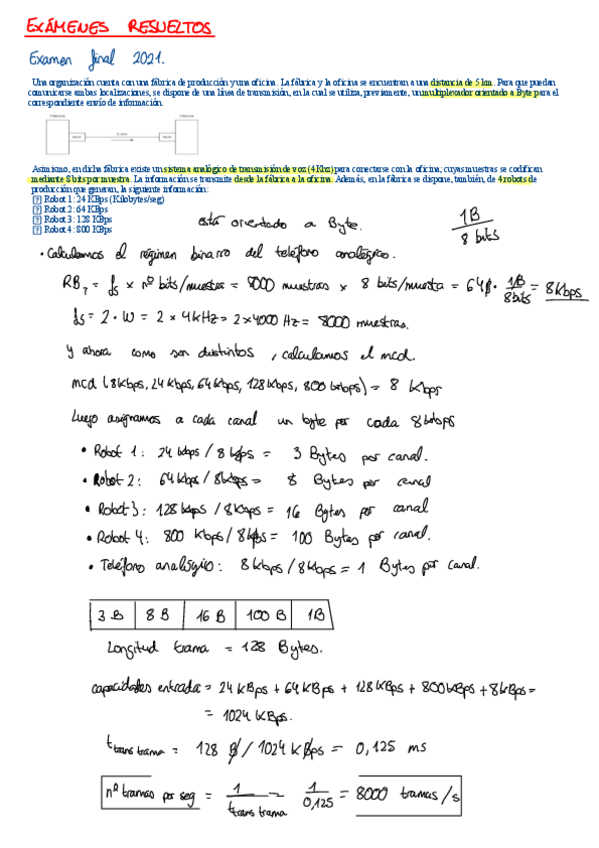 EXÁMENES RESUELTOS
Examen final 2021.
Una organización cuenta con una fábrica de producción y una oficina. La fábrica y la oficina se encuentran a una distancia de 5 km. Para que puedan
comunicarse ambas localizaciones, se dispone de una línea de transmisión, en la cual se utiliza, previamente, un multiplexador orientado a Byte para el
correspondiente envío de información.
Asimismo, en dicha fábrica existe un sistema analógico de transmisión de voz (4Khz) para conectarse con la oficina; cuyas muestras se codifican
mediante 8 bits por muestra. La información se transmite desde la fábrica a la oficina. Además, en la fábrica se dispone, también, de 4 robots de
producción que generan, la siguiente información:
Robot 1: 24 KBps (Kilobytes/seg)
Robot 2: 64 KBps
Robot 3: 128 KBps
Robot 4: 800 KBps
está orientado a Byte. 1B / 8 bits
• Calculamos el régimen binario del teléfono analógico.
RB_T = fs x nº bits/muestra = 8000 muestras x 8 bits/muestra = 64k · 1B/8bits = 8Kbps
fs = 2 · W = 2 x 4kHz = 2x4000 Hz = 8000 muestras.
y ahora como son distintos, calculamos el mcd.
mcd (8Kbps, 24 Kbps, 64Kbps, 128Kbps, 800 Kbps) = 8 Kbps
Luego asignamos a cada canal un byte por cada 8 kbps
• Robot 1: 24 kbps / 8 kbps = 3 Bytes por canal.
• Robot 2: 64 kbps / 8kbps = 8 Bytes por canal
• Robot 3: 128 kbps / 8Kbps = 16 Bytes por canal
• Robot 4: 800 Kbps / 8kbps = 100 Bytes por canal.
• Teléfono analógico: 8 Kbps / 8Kbps = 1 Bytes por canal.
3 B | 8 B | 16 B | 100 B | 1B
Longitud trama = 128 Bytes.
capacidades entrada = 24 KBps + 64 KBps + 128 KBps + 800 KBps + 8 KBps =
= 1024 KBps.
t trans trama = 128 B / 1024 K Bps = 0,125 ms
nº tramas por seg = 1 / t trans trama = 1 / 0,125 = 8000 tramas/s